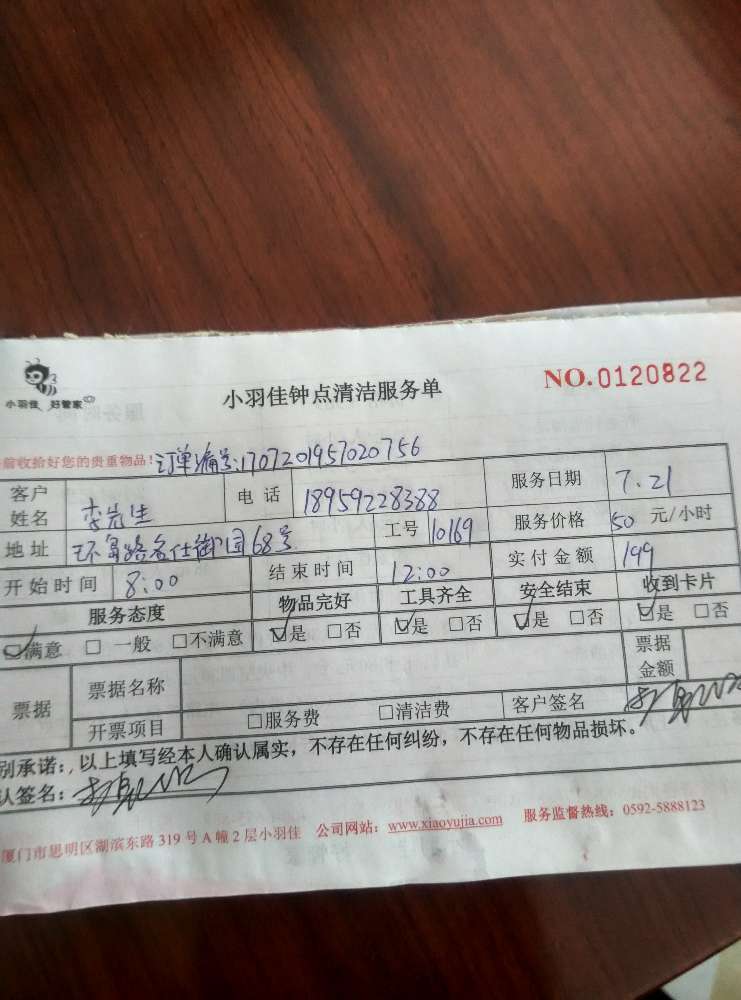 小羽佳 好管家
小羽佳钟点清洁服务单
NO.0120822
前收拾好您的贵重物品!订单编号:1707201957020756
客户姓名 李先生 电话 18959228388 服务日期 7.21
地址 环岛路名仕御园68号 工号 10169 服务价格 50 元/小时
开始时间 8:00 结束时间 12:00 实付金额 199
服务态度 物品完好 工具齐全 安全结束 收到卡片
☑满意 □ 一般 □不满意 ☑是 □否 ☑是 □否 ☑是 □否 ☑是 □否
票据 票据名称 票据金额
开票项目 □服务费 □清洁费 客户签名
别承诺:,以上填写经本人确认属实,不存在任何纠纷,不存在任何物品损坏。
认签名:
厦门市思明区湖滨东路 319 号 A 幢 2 层小羽佳 公司网站:www.xiaoyujia.com 服务监督热线:0592-5888123